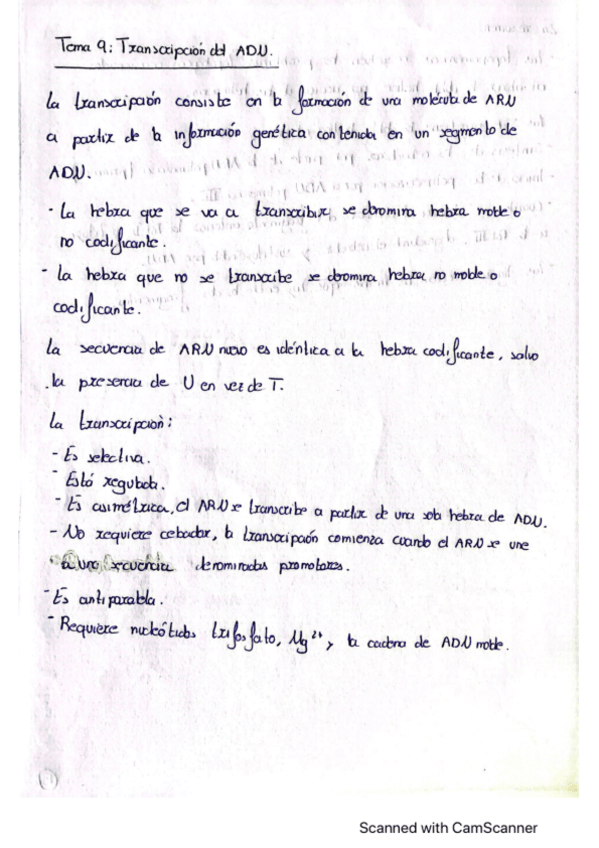 Tema 9: Transcripción del ADN.
La transcripción consiste en la formación de una molécula de ARN
a partir de la información genética contenida en un segmento de
ADN.
- La hebra que se va a transcribir se denomina hebra molde o
no codificante.
- La hebra que no se transcribe se denomina hebra no molde o
codificante.
La secuencia de ARN nuevo es idéntica a la hebra codificante, salvo
la presencia de U en vez de T.
La transcripción:
- Es selectiva.
- Está regulada.
- Es asimétrica, el ARN se transcribe a partir de una sola hebra de ADN.
- No requiere cebador, la transcripción comienza cuando el ARN se une
a una secuencia denominadas promotores.
- Es antiparalela.
- Requiere nucleótidos trifosfato, Mg2+ y la cadena de ADN molde.
Scanned with CamScanner